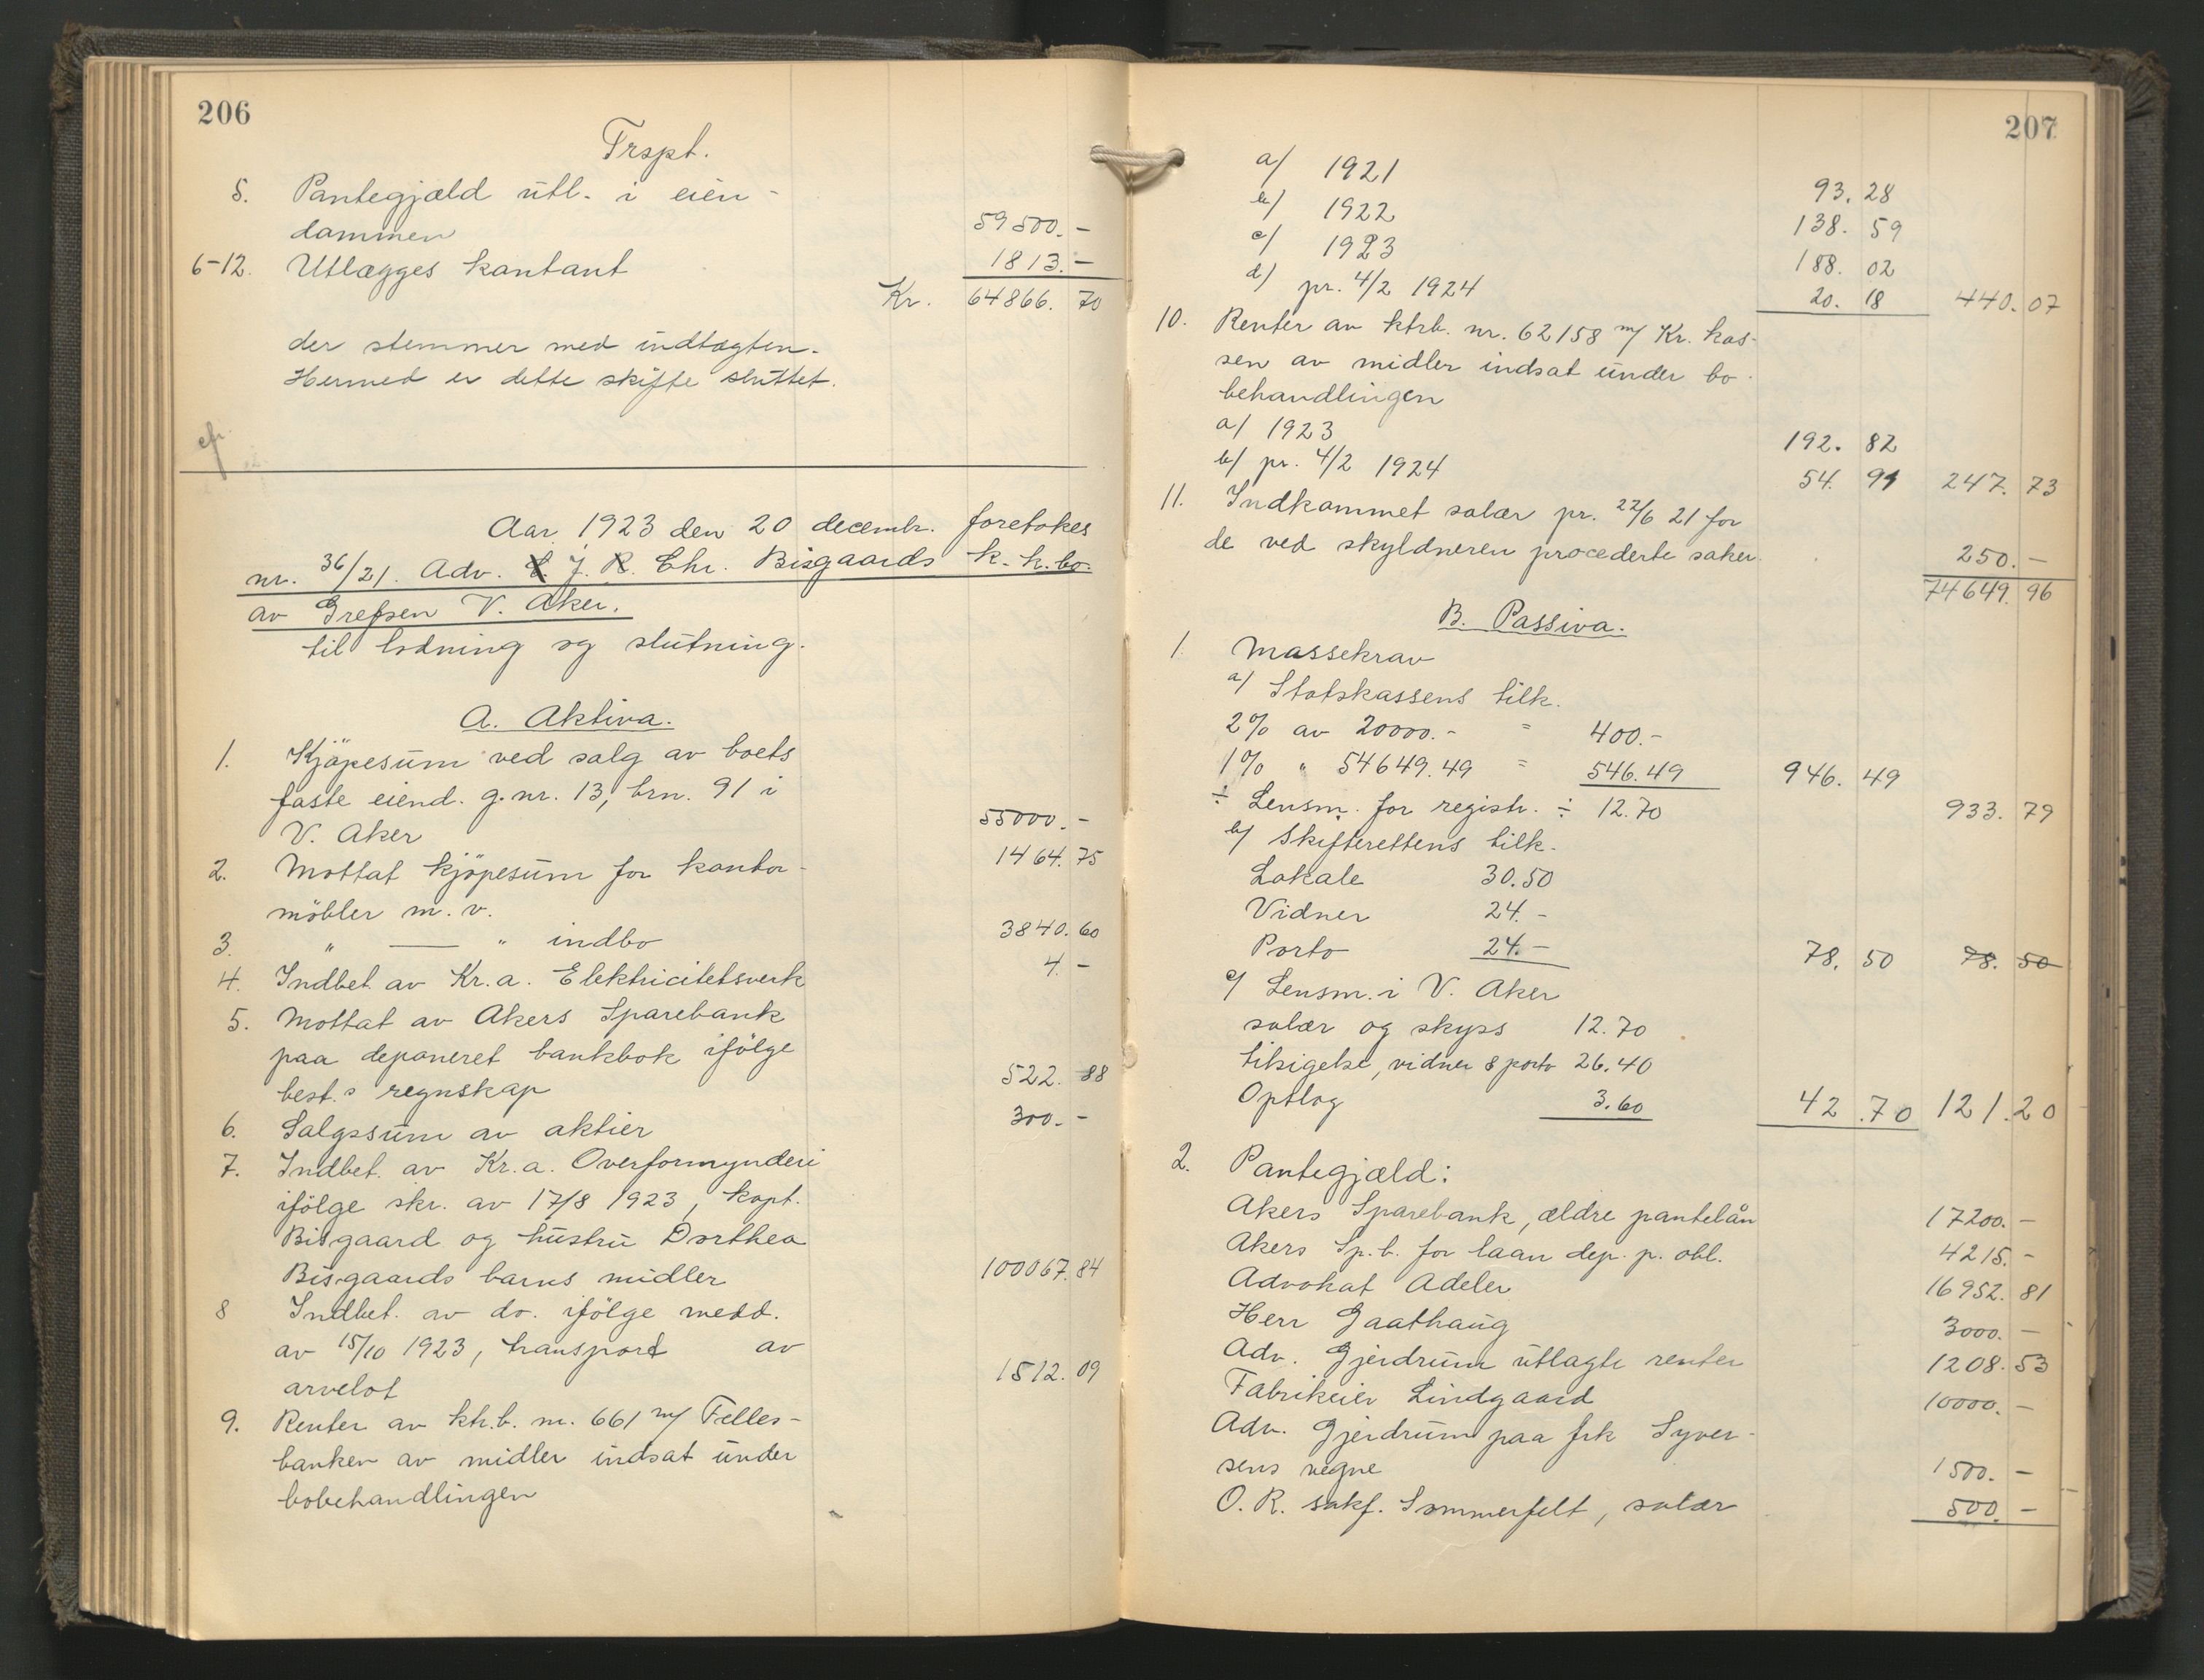 206
Trspt.
5. Pantegjæld utl. i eien-
dommen 59500.-
6-12. Utlægges kontant 1813.-
Kr. 64866. 70
der stemmer med indtægten.
Hermed er dette skifte sluttet.
Aar 1923 den 20 decembr. foretokes
nr. 36/21. Adv. J. Chr. Bisgaards k.k.bo.
av Grefsen V. Aker.
til lodning og slutning.
A. Aktiva.
1. Kjöpesum ved salg av boets
faste eiend. g.nr. 13, brn. 91 i
V. Aker 55000.-
2. Mottat kjöpesum for kontor-
möbler m.v. 1464.75
3. " — " indbo 3840.60
4. Indbet. av Kr.a. Elektricitetsverk 4.-
5. Mottat av Akers Sparebank
paa deponeret bankbok ifölge
best.s regnskap 522.88
6. Salgssum av aktier 300.-
7. Indbet. av Kr.a. Overformynderi
ifölge skr. av 17/8 1923, kapt.
Bisgaard og hustru Dorthea
Bisgaards barns midler 10067.84
8 Indbet. av do. ifölge medd.
av 15/10 1923, transport av
arvelot 1512.09
9. Renter av ktr.b. nr. 661 m/ Felles-
banken av midler indsat under
bobehandlingen
207
a/ 1921 93. 28
b/ 1922 138. 59
c/ 1923 188. 02
d/ pr. 4/2 1924 20. 18 440.07
10. Renter av ktrb. nr. 62158 m/ Kr. kas-
sen av midler indsat under bo-
behandlingen
a/ 1923 192. 82
b/ pr. 4/2 1924 54. 91 247. 73
11. Indkommet salær pr. 22/6 21 for
de ved skyldneren procederte saker. 250.-
74649.96
B. Passiva.
1. Massekrav
a/ Statskassens tilk.
2% av 20000.- = 400.-
1% " 54649.49 = 546.49 946. 49
÷ Lensm. for registr. ÷ 12.70 933. 79
b/ Skifterettens tilk.
Lokale 30.50
Vidner 24.-
Porto 24.- 78. 50 78. 50
c/ Lensm. i V. Aker
salær og skyss 12.70
tilsigelse, vidner & porto 26.40
Optlog 3.60 42.70 121.20
2. Pantegjæld:
Akers Sparebank, ældre pantelån 17200.-
Akers Sp.b. for laan dep. p. obl. 4215.-
Advokat Adeler 16952. 81
Herr Gaathaug 3000.-
Adv. Gjerdrum utlagte renter 1208.53
Fabrikeier Lindgaard 10000.-
Adv. Gjerdrum paa frk Syver-
sens vegne 1500.-
O.R. sakf. Sommerfelt, salær 500.-